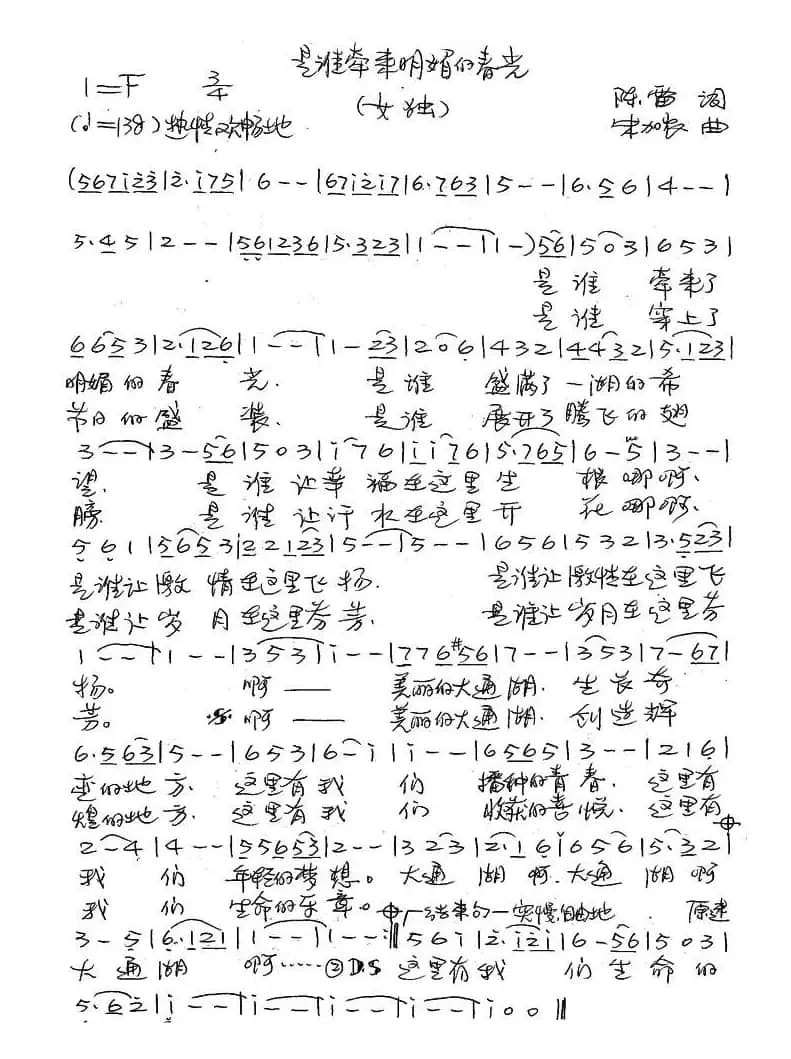 是谁牵来明媚的春光
1=F 3/4
(女独)
陈雷 词
(♩=138) 热情欢畅地
宋加农 曲
(567i23|2·i75|6--|67i2i7|6·763|5--|6·56|4--|
5·45|2--|561236|5·323|1--|1-)56|503|653|
是谁 牵来了
是谁 穿上了
6653|2·126|1--|1-23|206|432|4432|5·123|
明媚的春 光. 是谁 盛满了一湖的希
节日的盛 装. 是谁 展开了腾飞的翅
3--|3-56|503|i76|ii76|5·765|6-5|3--|
望. 是谁让幸福在这里生 根哪啊.
膀. 是谁让汗水在这里开 花哪啊.
561|5653|22123|5--|5--|656|532|3·523|
是谁让激 情在这里飞扬. 是谁让激情在这里飞
是谁让岁 月在这里芬芳. 是谁让岁月在这里芬
1--|1--|353|i--|776#56|7--|353|7-67|
扬。 啊—— 美丽的大通湖. 生长奇
芳。 啊—— 美丽的大通湖. 创造辉
6·563|5--|653|6-i|i--|6565|3--|216|
迹的地方. 这里有我 们 播种的青春. 这里有
煌的地方. 这里有我 们 收获的喜悦. 这里有
2-4|4--|55653|2--|323|2·16|656|5·32|
我 们 年轻的梦想。大通 湖 啊.大通 湖啊
我 们 生命的乐章。 结束句—突慢自由地 原速
3-5|6·121|1--|1--‖56i|2·i2i|6-56|503|
大通湖 啊……②D.S 这里有我 们生命的
5·62|i--|i--|i--|i--|i00‖